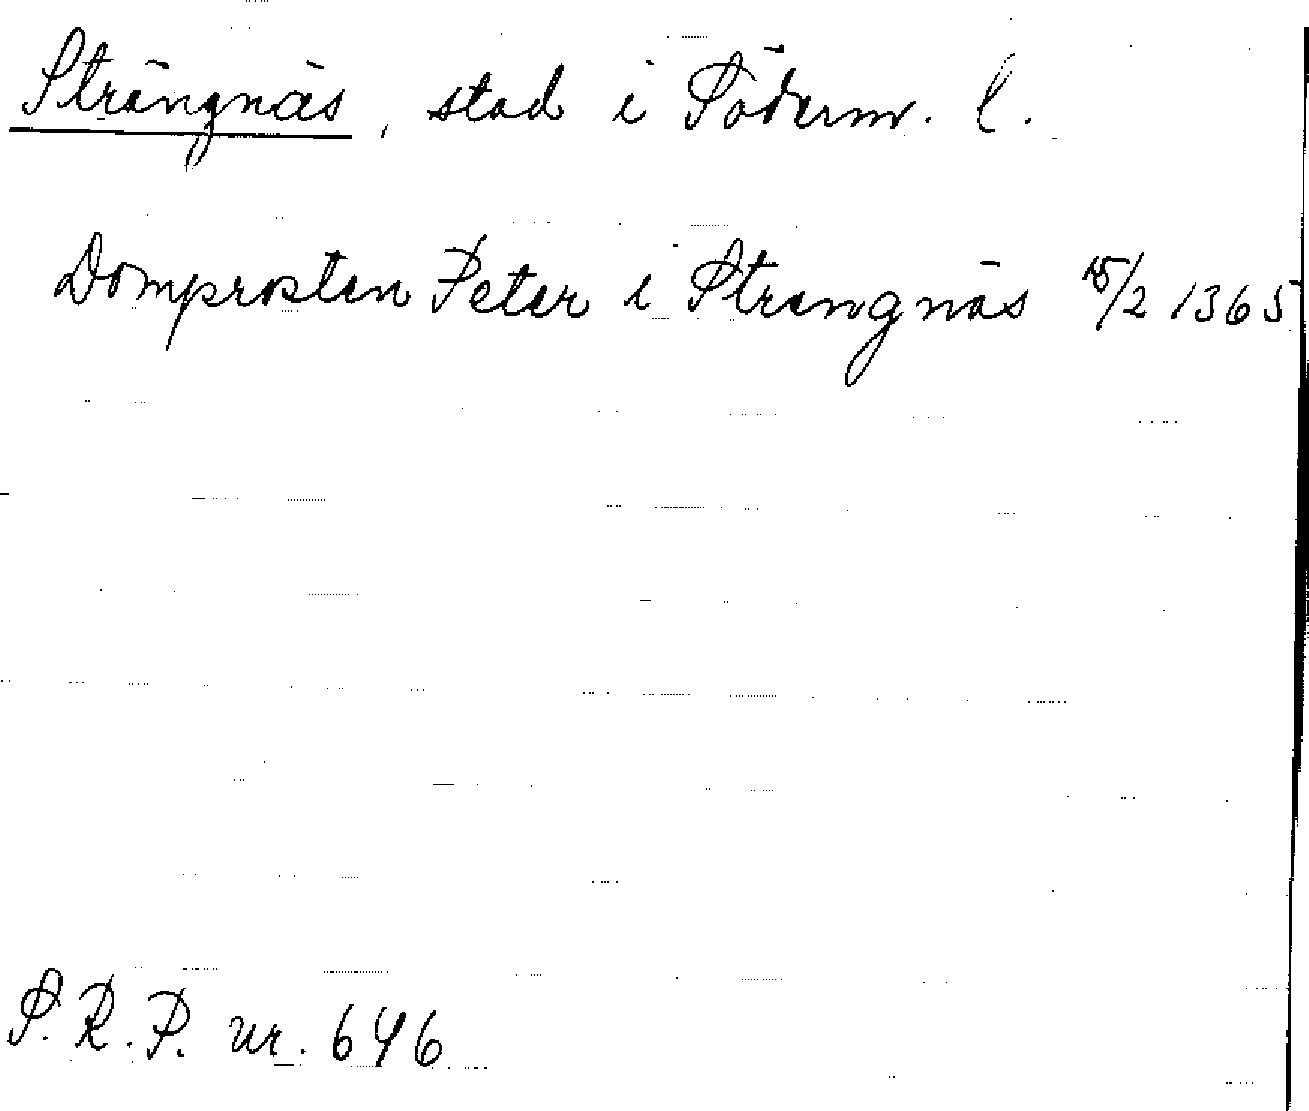 Strängnäs, stad i Söderm. l.
Domprosten Peter i Strängnäs 15/2 1365
S.R.P. nr. 646